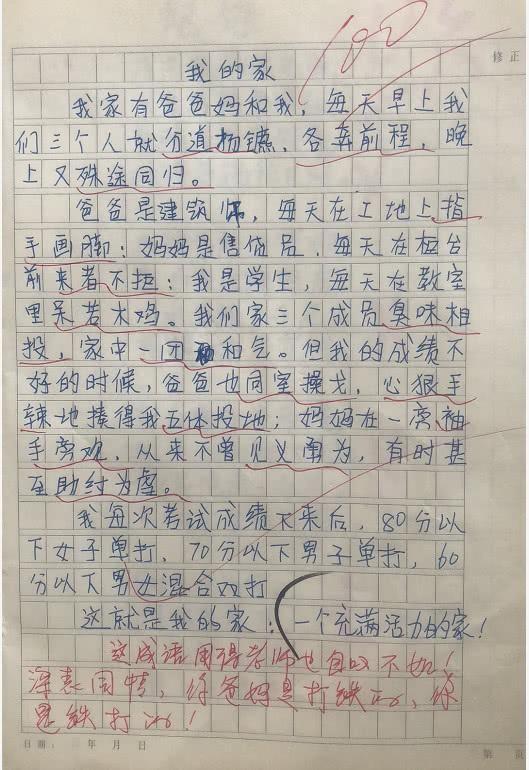 100
修正
我的家
我家有爸爸妈和我，每天早上我
们三个人就分道扬镳，各奔前程，晚
上又殊途同归。
爸爸是建筑师，每天在工地上指
手画脚；妈妈是售货员，每天在柜台
前来者不拒；我是学生，每天在教室
里呆若木鸡。我们家三个成员臭味相
投，家中一团和气。但我的成绩不
好的时候，爸爸也同室操戈，心狠手
辣地揍得我五体投地；妈妈在一旁袖
手旁观，从来不曾见义勇为，有时甚
至助纣为虐。
我每次考试成绩下来后，80分以
下女子单打，70分以下男子单打，60
分以下男女混合双打
这就是我的家：一个充满活力的家！
这成语用得老师也自以不如！
深表同情，你爸妈是打铁的，你
是铁打的！
日期： 年 月 日
第 页